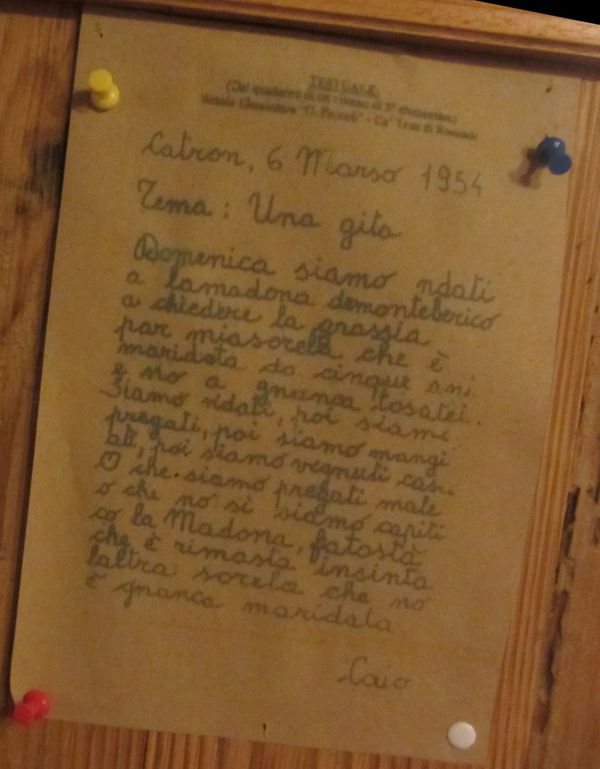 TESTUALE:
(Dal quaderno di un alunno di 3ª elementare)
Scuola Elementare "G. Pascoli" - Ca' Tron di Roncade
Catron, 6 Marso 1954
Tema : Una gita
Domenica siamo ndati
a lamadona demonteberico
a chiedere la grassia
par miasorela che è
maridata da cinque ani
e no a gnanca tosatei.
Siamo ndati, poi siamo
pregati, poi siamo mangi
ati, poi siamo vegnuti casa.
O che siamo pregati male
o che no si siamo capiti
co la Madona, fatostà
che è rimasta insinta
laltra sorela che no
è gnanca maridata.
Caio